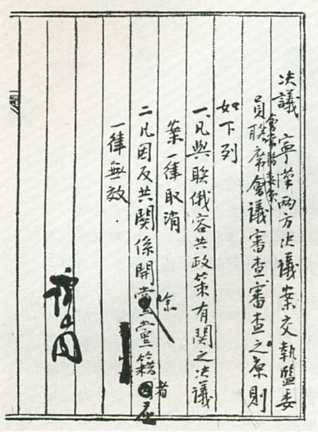 決議 寧漢兩方決議案交執監委
員聯席會議審查審查之原則
如下列
一凡與聯俄容共政策有關之決議
案一律取消
二凡因反共関係開除黨籍者
一律無效．